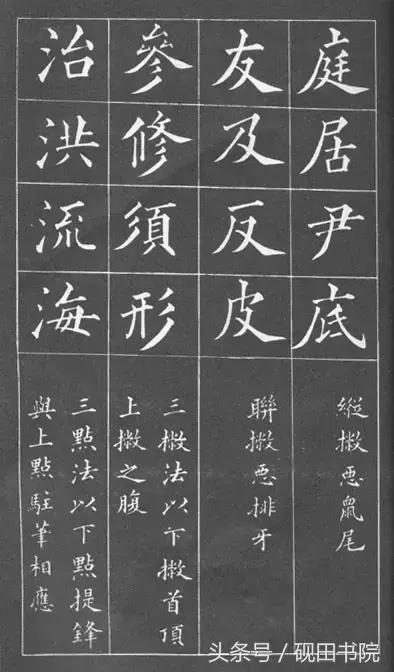 庭居尹底
縱撇惡鼠尾
友及反皮
聯撇惡排牙
參修須形
三撇法以下撇首頂
上撇之腹
治洪流海
三點法以下點提鋒
與上點駐筆相應
头条号／砚田书院